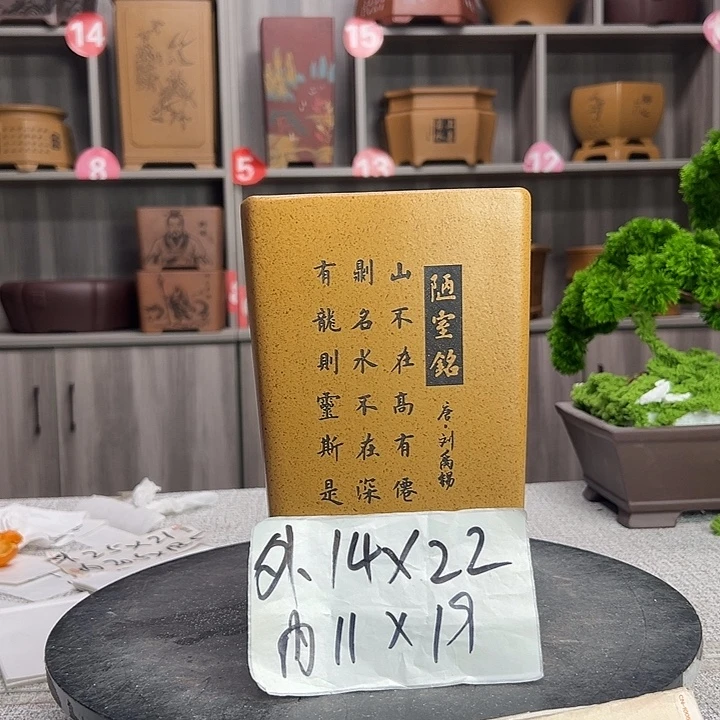 陋室銘
唐·刘禹锡
山不在高有僊
劓名水不在深
有龍則靈斯是
外14×22
内11×19
14
15
8
5
13
12